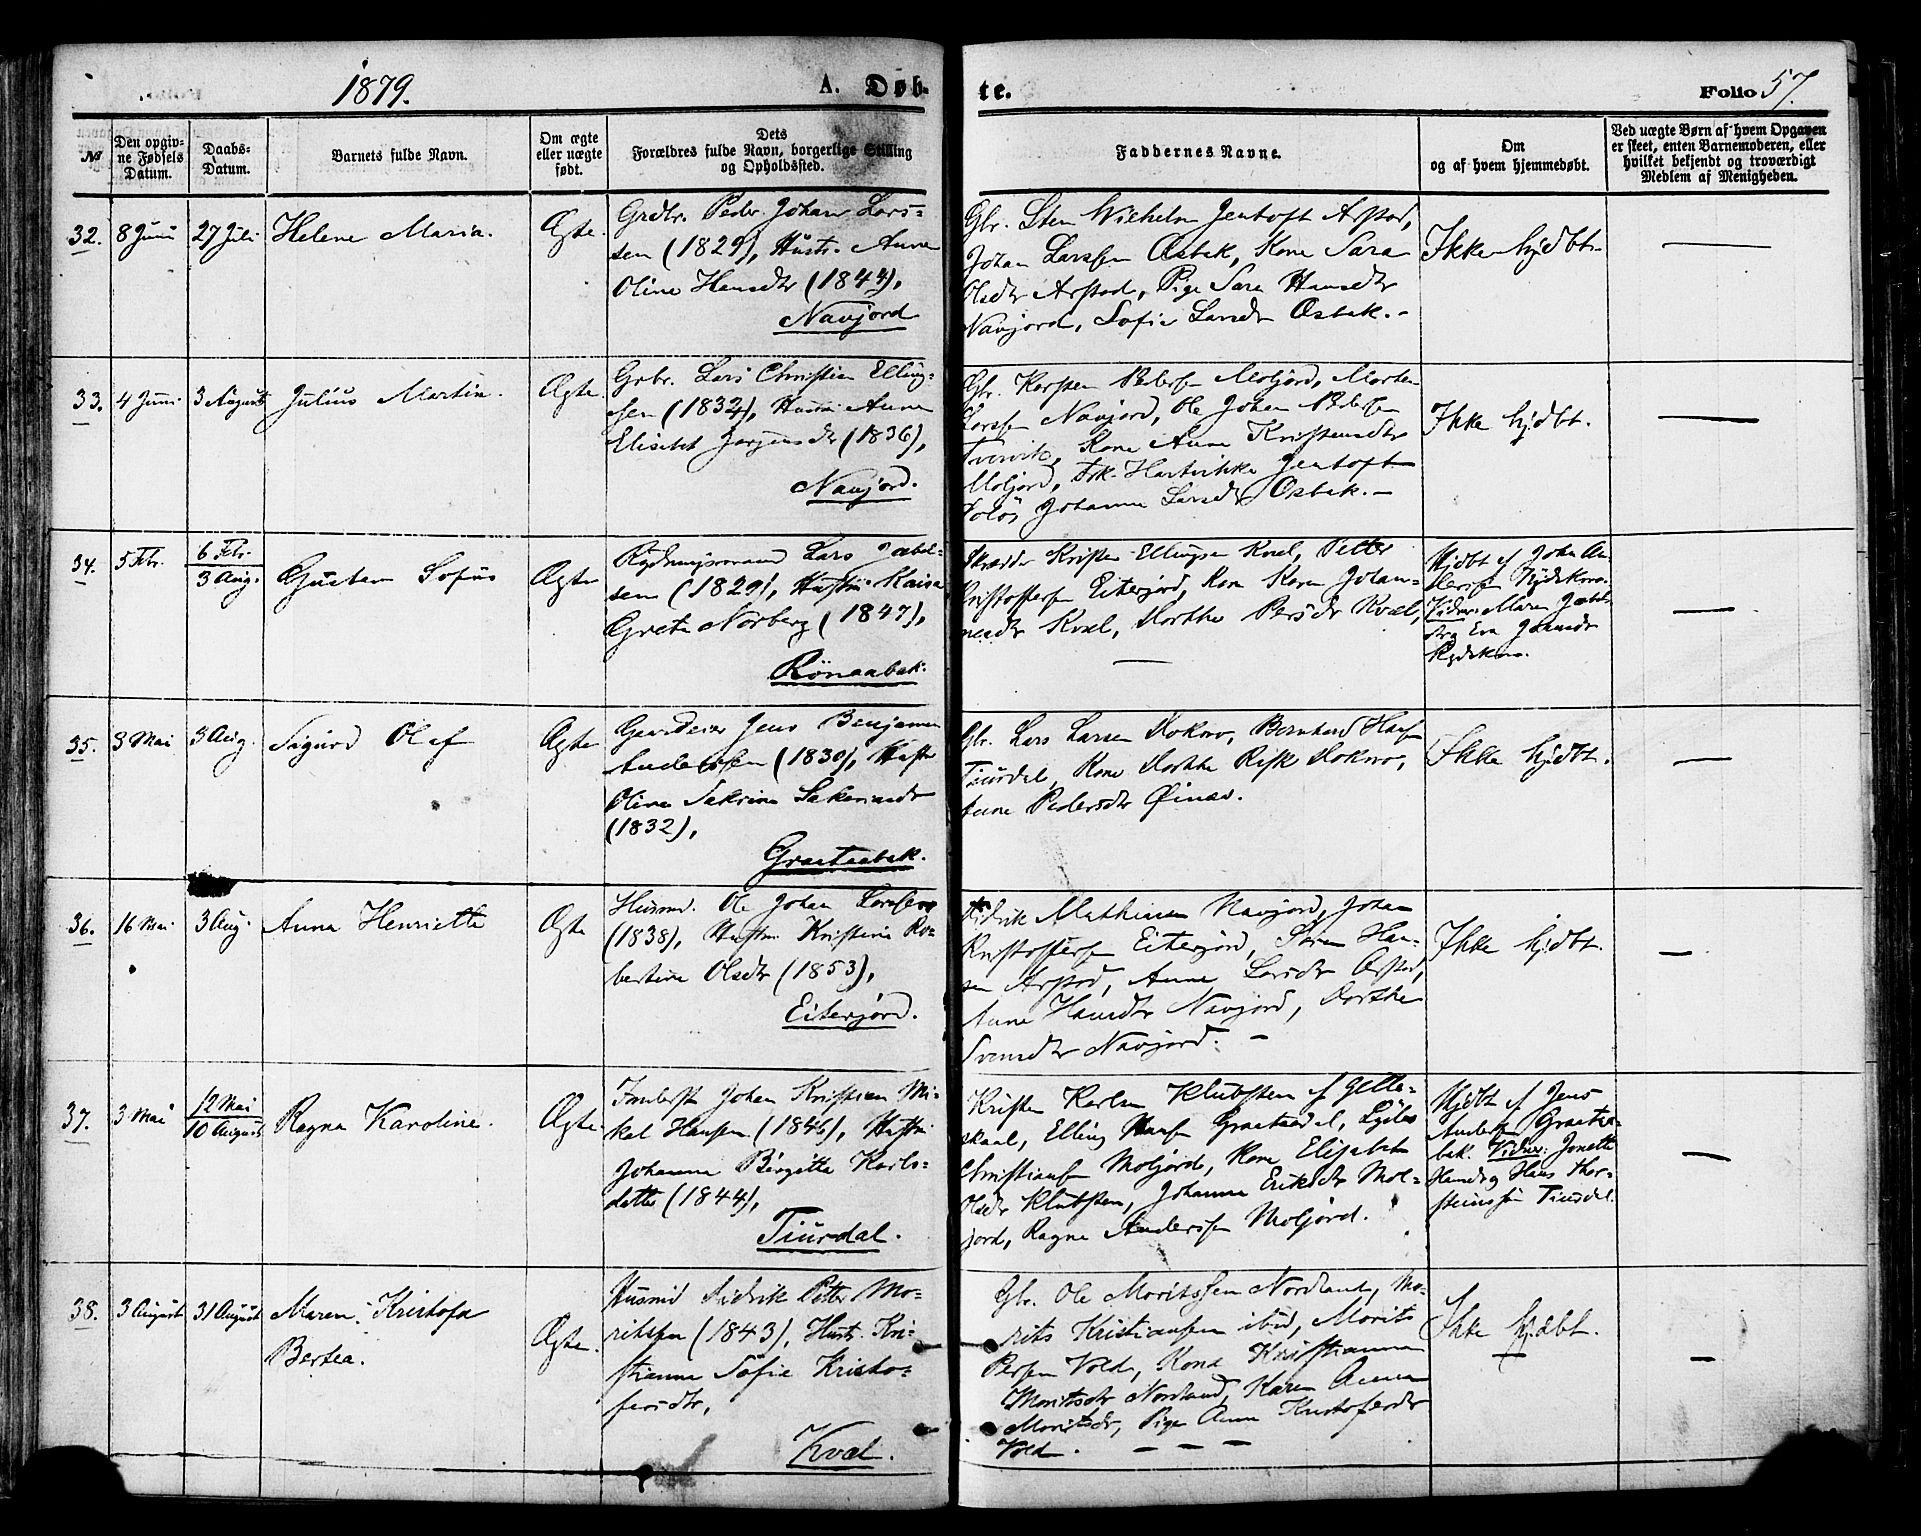 1879.
A. Døb-
te.
Folio 57.
№
Den opgiv-
ne Fødsels
Datum.
Daabs-
Datum.
Barnets fulde Navn.
Om ægte
eller uægte
født.
Dets
Forældres fulde Navn, borgerlige Stilling
og Opholdssted.
Faddernes Navne.
Om
og af hvem hjemmedøbt.
Ved uægte Børn af hvem Opgaven
er skeet, enten Barnemoderen, eller
hvilket bekjendt og troværdigt
Medlem af Menigheden.
32.
8 Juni
27 Juli
Helene Maria.
Ægte.
Grdbr. Peder Johan Lars-
sen (1829), Hustr. Anne
Oline Hansdtr (1844),
Navjord
Gbr. Sten Wilhelm Jentoft Arstad,
Johan Larssen Osbak, Kone Sara
Olsdtr Arstad, Pige Sara Hansdtr
Navjord, Sofie Larsdtr Osbak.-
Ikke hjdbt.
33.
4 Juni
3 August
Julius Martin.
Ægte.
Grbr. Lars Christian Elling-
sen (1832), Hustr. Anne
Elisabet Jørgensdtr (1836),
Navjord.
Gbr. Karsten Pedersen Moljord, Morten
Larssen Navjord, Ole Johan Pedersen
Tvervik, Kone Anne Kristensdtr
Moljord, Frk. Hartvikke Jentoft
Johanna Larsdtr Osbak.-
Ikke hjdbt.
34.
5 Febr.
6 Febr.
3 Aug.
Gustav Sofus
Ægte
Rydningsmand Lars Jakob-
sen (1829), Hustr. Kaisa
Greta Norberg (1847),
Rönaabak.
Skrædder Kristen Ellingsen Kvæl, Petter
Kristoffersen Eiterjord, Kone Karen Johan-
nesdtr Kvæl, Dorthe Persdtr Kvæl,
Hjdbt af John An-
dersen
Vidner: Maren Jakobs-
dtr og Eva
35.
3 Mai
3 Aug.
Sigurd Olaf
Ægte
Gaardeier Jens Benjamin
Anderssen (1830), Hustr.
Oline Sakrine Sakariasdtr
(1832),
Graataabak.
Gbr. Lars Larsen Dokmo, Bernhard Hansen
Tiurdal, Kone Dorthe Risk Dokmo,
Anne Pedersdtr Øinæs.
Ikke hjdbt.
36.
16 Mai
3 Aug.
Anna Henriette
Ægte
Husmd. Ole Johan Larssen
(1838), Hustr. Kristine Ro-
bertine Olsdtr (1853),
Eiterjord.
Fredrik Mathisen Navjord, Johan
Kristoffersen Eiterjord, Søren Han-
sen Arstad, Anne Larsdtr Arstad,
Anne Hansdtr Navjord, Dorthe
Svensdtr Navjord. -
Ikke hjdbt.
37.
3 Mai
12 Mai
10 August
Ragna Karoline.
Ægte.
Inderst Johan Kristian Mi-
kal Hansen (1846), Hustr.
Johanna Birgitte Karls-
datter (1844),
Tiurdal.
Kristen Karlsen Klubsten af Gilde-
skaal, Elling Hansen Graataadal,
Christiansen Moljord, Kone Elisabet
Olsdtr Klubsten, Johanna Eriksdtr Mol-
jord, Ragna Anderssen Moljord.
Hjdbt af Jens
Anderssen Graataa-
bak. Vidner: Jonette
Hansdtr og Hans Thor-
steinssön Tiurdal.
38.
3 August
31 August
Maren Kristofa
Bertea.
Ægte.
Husmd Fredrik Petter Mo-
ritssen (1843), Hustr. Kri-
stianne Sofie Kristo-
fersdtr,
Kvæl.
Gbr. Ole Moritssen Nordland, Mo-
rits Kristiansen ibid, Morits
Persen Vold, Kone Kristianna
Moritsdtr Nordland, Karen Anna
Moritsdtr, Pige Anne Kristofersdtr
Vold. - - -
Ikke hjdbt.